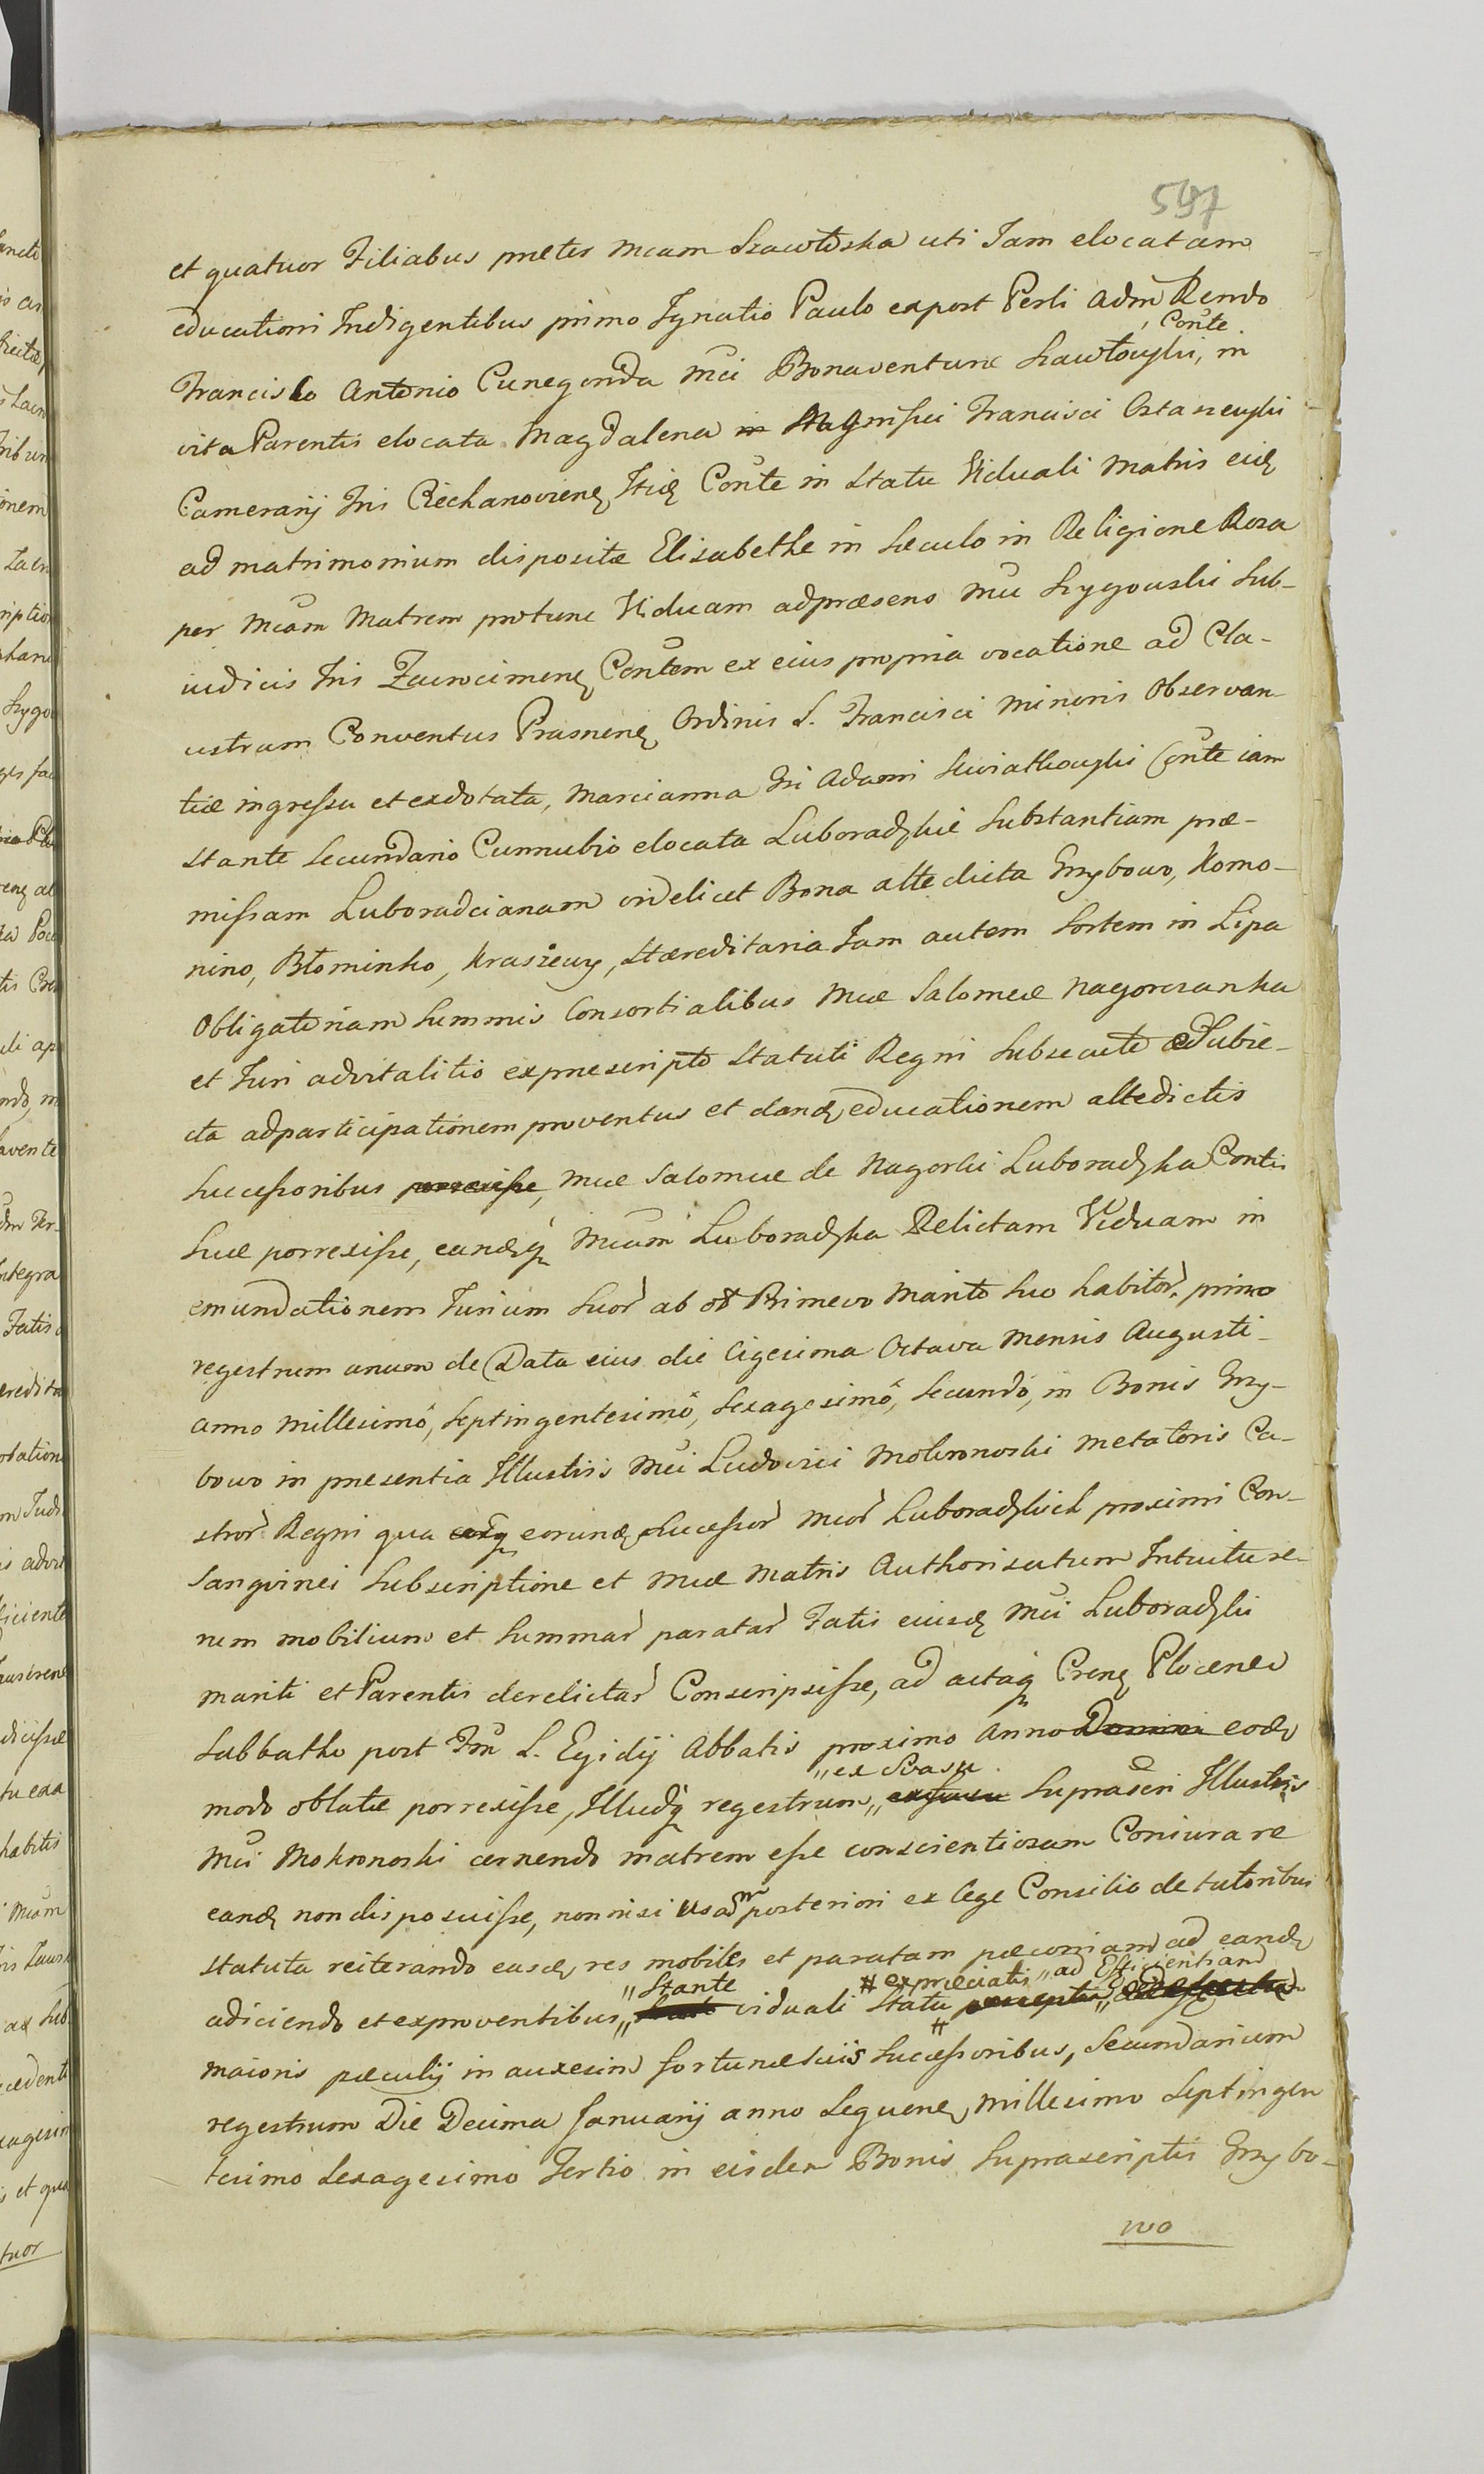 597
et quatuor Filiabus præter Mcam Szawłoska uti Jam elocatam
educationi Indigentibus primo Ignatio Paulo expost Perli adm̃ Rendo
Francisco Antonio Cunegonda Mc̃i Bonaventuræ Szawłowski, Con̄te in
vita Parentis elocata Magdalena in Magnifici Francisci Ostaszewski
Camerarij Tris Ciechanoviene Itid Con̄te in Statu Viduali Matris eid
ad matrimonium dispositæ Elisabethe in Sæculo in Religione Roza
per Mc̃am Matrem protunc Viduam adpræsens Mci Szygowski Sub-
iudicis Tris Zacrocimene Con̄tem ex eius propria vocatione ad Cla-
ustrum Conventus Prasnene Ordinis S. Francisci Minoris Observan-
tiæ ingressu et exdotata, Marcianna Gsi Adami Swiatkowski Con̄te iam
stante Secundario Cunnubio elocata Luboradzkie Substantiam præ-
missam Luboradcianam videlicet Bona alte dicta Grzybowo, Komo-
nino, Błominko, Krasiewy, Hæreditaria Jam autem Sortem in Lipa
Obligatoriam Summis Consortialibus Mcæ Salomeæ Nagorczanka
et Juri advitalitio expræscripto Statuti Regni Subsecuto adSubie-
cta adparticipationem proventus et dand educationem altedictis
Successoribus porrexisse, Mcæ Salomeæ de Nagorki Luboradzka Conti
Suæ porrexisse, eandq Mc̃am Luboradzka Relictam Viduam in
emundationem Jurium Suor ab ol Primevo Marito Suo habitor, primo
regestrum unum de Data eius die Vigesima Octava Mensis Augusti
anno Millesimo, Septingentesimo, Sexagesimo, Secundo, in Bonis Grzy-
bowo in præsentia Illustris Mc̃i Ludovici Mokronoski Metatoris Ca-
stror Regni qua eorund Successor Mcor Luboradzkich proximi Con-
sanguinei Subscriptione et Mcæ Matris Authorisatum Intuitu re-
rum mobilium et Summar paratar Fatis eiusd Mc̃i Luboradzki
mariti et Parentis derelictar Conscripsisse, ad actaq Crene Plocenen
Sabbatho post Fm̃ S. Egidij Abbatis proximo Anno Domini eod
modo oblatæ porrexisse, Illudq regestrum, „ex Svasu Suprascri Illustris
Mc̃i Mokronoski cernendo matrem esse conscientiosam Coniurare
eand non disposuisse, nonnisi posteriori ex lege Consilio de tutoribus
statuta reiterando easd res mobiles et paratam pæcuniam ad eand
adiciendo et exproventibus „Stante viduali Statu # expræciatis „ad Efficientiam
maioris pæculij in auxesim fortunæ Suis Successoribus, Secundarium
regestrum Die Decima Januarij anno Sequene Millesimo Septingen
tesimo Sexagesimo Tertio in eisdem Bonis Suprascriptis Grzybo-
wo